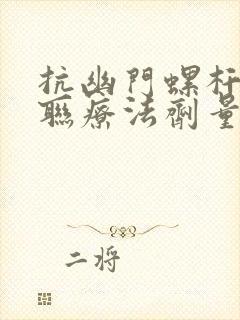 抗幽門螺杆
聯療法劑量
二将